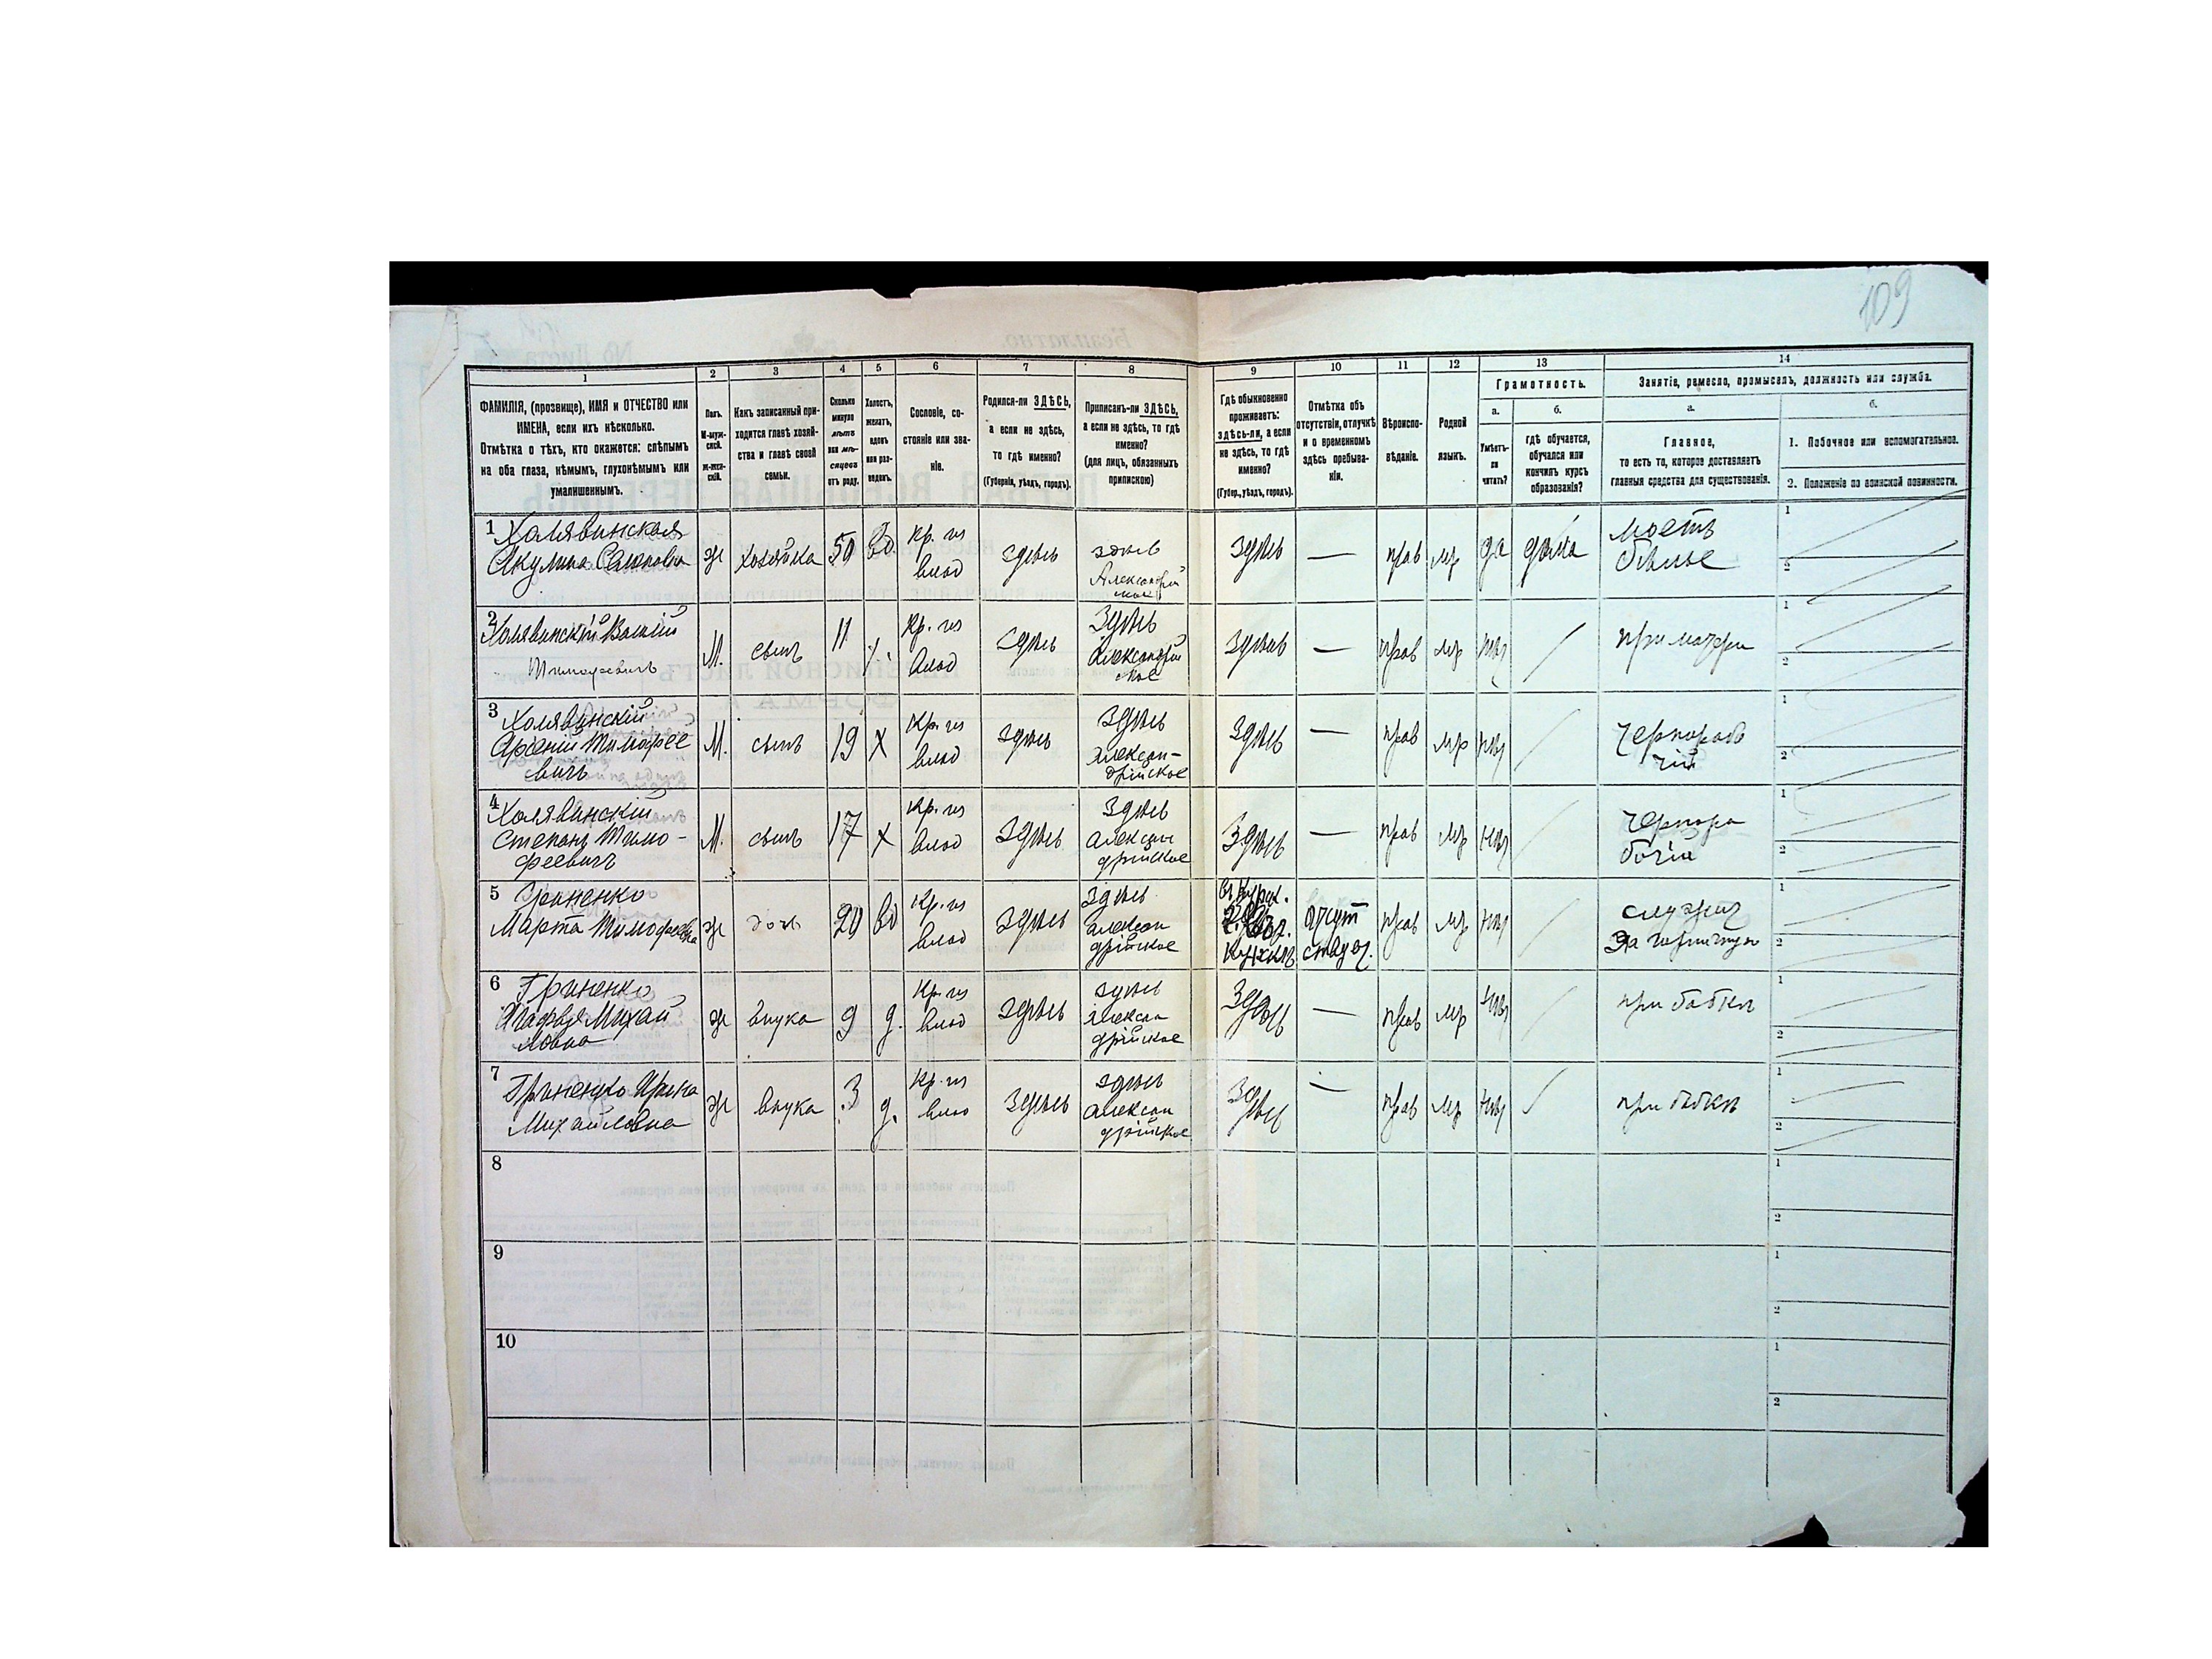 109
1
2
3
4
5
6
7
8
9
10
11
12
13
14
ФАМИЛІЯ, (прозвище), ИМЯ и ОТЧЕСТВО или
ИМЕНА, если ихъ нѣсколько.
Отмѣтка о тѣхъ, кто окажется: слѣпымъ
на оба глаза, нѣмымъ, глухонѣмымъ или
умалишеннымъ.
Полъ.
М-муж-
ской.
ж-жен-
скій.
Какъ записанный при-
ходится главѣ хозяй-
ства и главѣ своей
семьи.
Сколько
минуло
лѣтъ
или мѣ-
сяцевъ
отъ роду.
Холостъ,
женатъ,
вдовъ
или раз-
веденъ.
Сословіе, со-
стояніе или зва-
ніе.
Родился-ли ЗДѢСЬ,
а если не здѣсь,
то гдѣ именно?
(Губернія, уѣздъ, городъ).
Приписанъ-ли ЗДѢСЬ,
а если не здѣсь, то гдѣ
именно?
(для лицъ, обязанныхъ
припискою)
Гдѣ обыкновенно
проживаетъ:
здѣсь-ли, а если
не здѣсь, то гдѣ
именно?
(Губер., уѣздъ, городъ).
Отмѣтка объ
отсутствіи, отлучкѣ
и о временномъ
здѣсь пребыва-
ніи.
Вѣроиспо-
вѣданіе.
Родной
языкъ.
Грамотность.
а.
Умѣетъ-
ли
читать?
б.
гдѣ обучается,
обучался или
кончилъ курсъ
образованія?
Занятіе, ремесло, промыселъ, должность или служба.
а.
Главное,
то есть то, которое доставляетъ
главныя средства для существованія.
б.
1. Побочное или вспомогательное.
2. Положеніе по воинской повинности.
1 Холявинская
Акулина
ж
хозяйка
50
вд.
Кр. из
влад
здѣсь
здѣсь
Александрій
ское
Здѣсь
—
прав
мр
да
дома
моетъ
бѣлье
1
2
2 Холявинскій
Тимофеевичъ
М.
сынъ
11
Кр. из
влад
Здѣсь
Здѣсь
Александрій
ское
Здѣсь
—
прав
мр
нѣт
при матери
1
2
3 Холявинскій
Арсеній Тимофее
вичъ
М.
сынъ
19
х
Кр. из
влад
здѣсь
Здѣсь
Алексан-
дрійское
Здѣсь
—
прав
мр
нѣт
Чернорабо
чій
1
2
4 Холявинскій
Степанъ Тимо-
феевичъ
М.
сынъ
17
х
Кр. из
влад
Здѣсь
Здѣсь
Алексан
дрійское
Здѣсь
—
прав
мр
нѣт
Чернора
бочій
1
2
5 Гриненко
Марта Тимофеевна
ж
дочь
вд
Кр. из
влад
Здѣсь
Здѣсь
Алексан
дрійское
отсут
ствует.
прав
мр
нѣт
служит
За горничную
1
2
6 Гриненко
Агафья Михай
ловна
ж
внука
9
д.
Кр. из
влад
здѣсь
здѣсь
Алексан
дрійское
Здѣсь
—
прав
мр
нѣт
при бабкѣ
1
2
7 Гриненко Ирина
Михайловна
ж
внука
3
д.
Кр. из
влад
Здѣсь
здѣсь
Алексан
дрійское
Здѣсь
—
прав
мр
нѣт
при бабкѣ
1
2
8
1
2
9
1
2
10
1
2